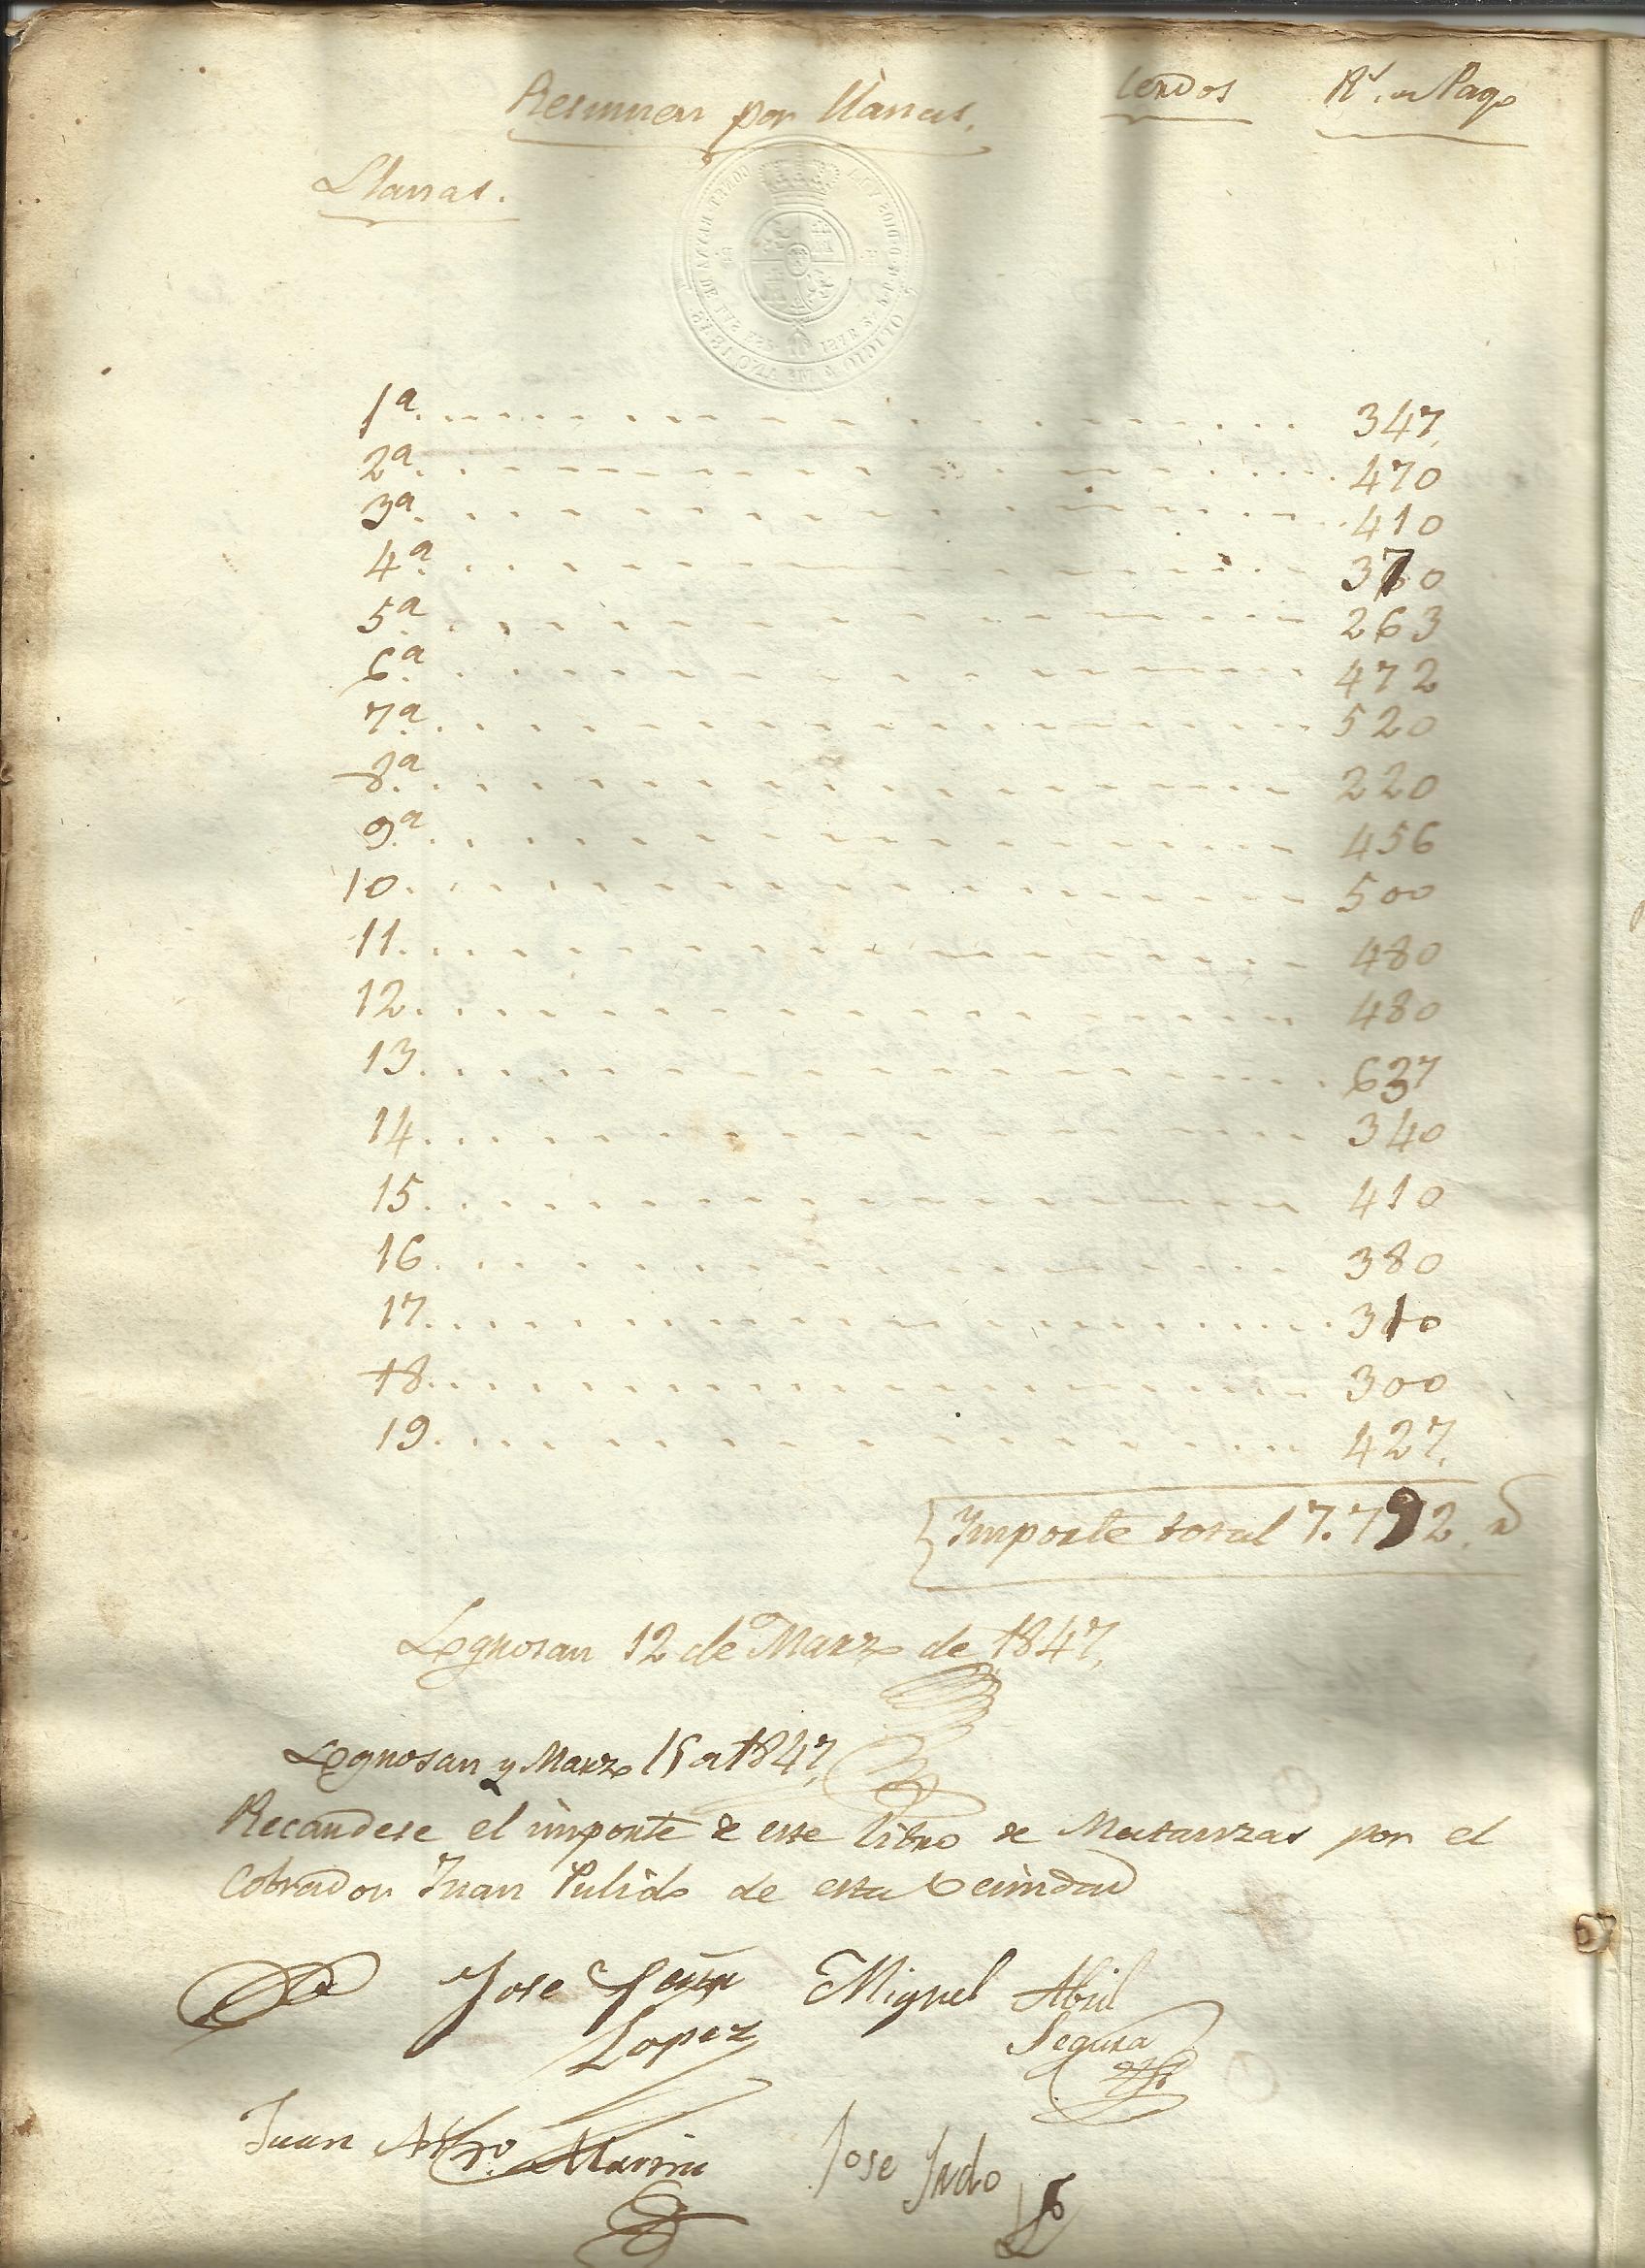 Resumen por llanas. Cerdos Rs. en Pago
Llanas.
1ª 347
2ª 470
3ª 410
4ª 370
5ª 263
6ª 472
7ª 520
8ª 220
9ª 456
10 500
11 480
12 480
13 637
14 340
15 410
16 380
17 310
18 300
19 427
Importe total 7.792
Logrosan 12 de Marzo de 1847
Logrosan y Marzo 15 a 1847
Recaudese el importe de este libro de Matanzas por el
Cobrador Juan Pulido de esta Vecindad
Jose Miguel Abril
Lopez Segura
Juan Marin Jose